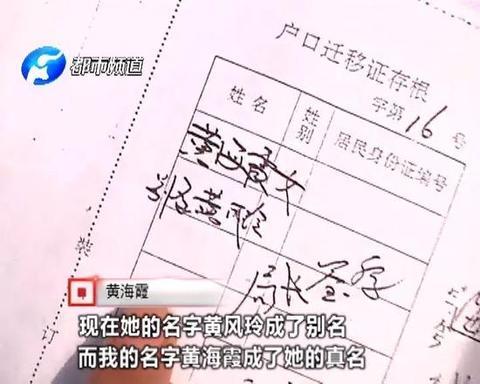 都市频道
户口迁移证存根
字第16号
姓名 性别 居民身份证编号
局长签字
装
订
黄海霞
现在她的名字黄风玲成了别名
而我的名字黄海霞成了她的真名